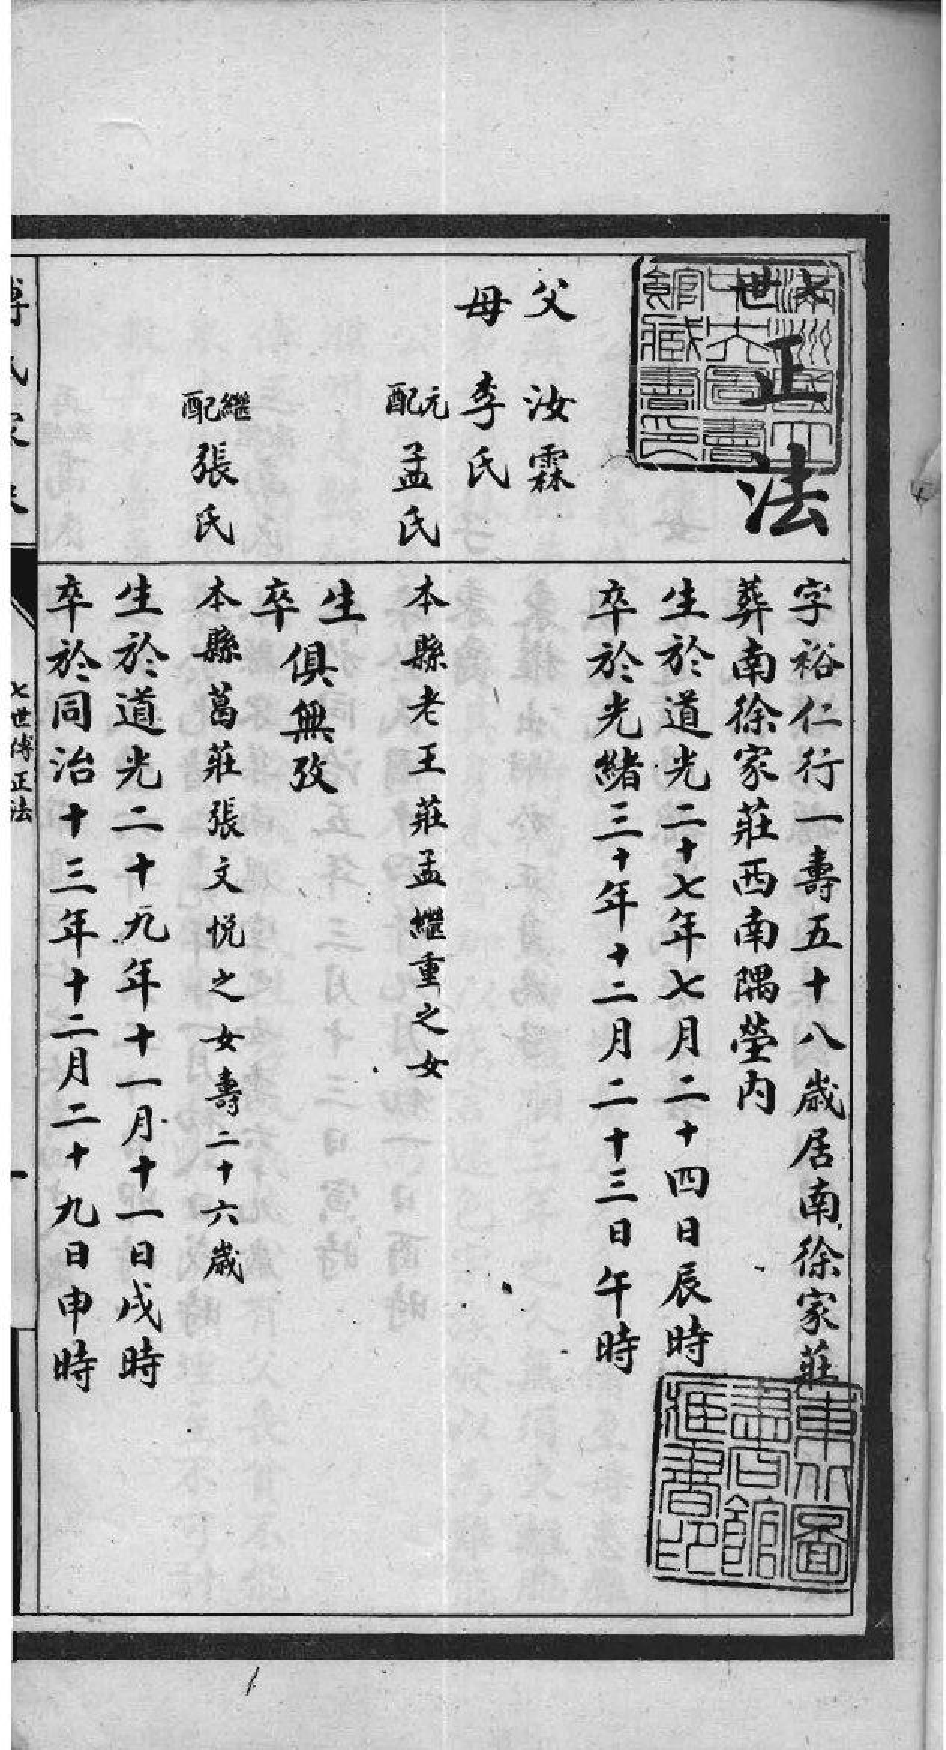 七世
正法
字裕仁行一壽五十八歲居南徐家莊
葬南徐家莊西南隅塋內
生於道光二十七年七月二十四日辰時
卒於光緒三十年十二月二十三日午時
父 汝霖
母 李氏
元配 孟氏
本縣老王莊孟繼重之女
生
卒
俱無攷
繼配 張氏
本縣葛莊張文悅之女壽二十六歲
生於道光二十九年十一月十一日戌時
卒於同治十三年十二月二十九日申時
傅氏家
七世傅正法
一
東北圖
書館
藏書印